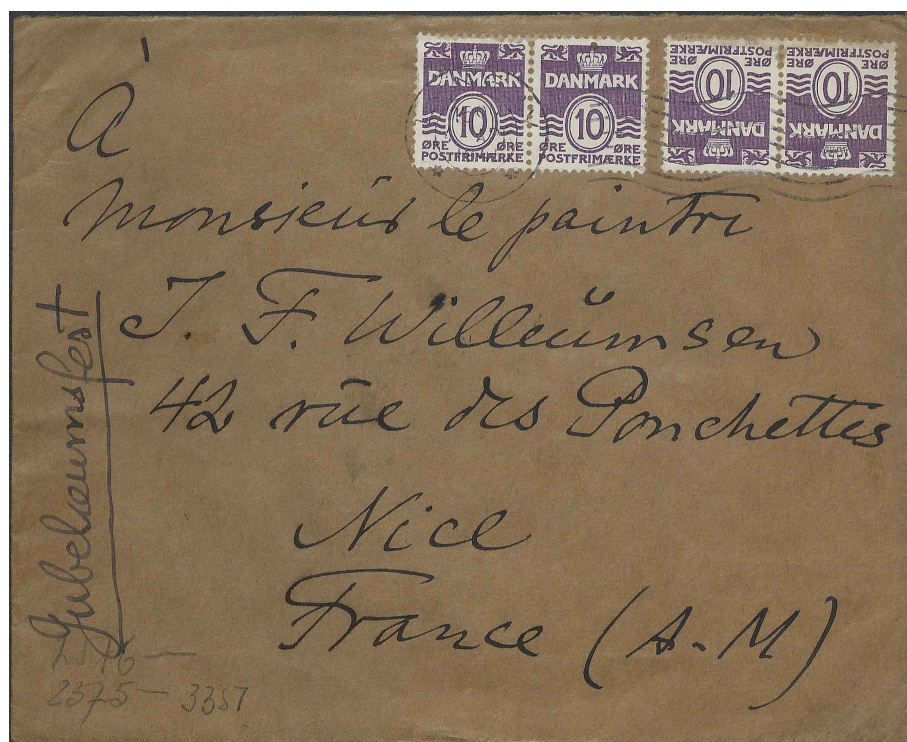 DANMARK 10 ØRE ØRE POSTFRIMÆRKE
DANMARK 10 ØRE ØRE POSTFRIMÆRKE
DANMARK 10 ØRE ØRE POSTFRIMÆRKE
DANMARK 10 ØRE ØRE POSTFRIMÆRKE
À
Monsieur le paintre
J. F. Willumsen
42 rue des Ponchettes
Nice
France (A-M)
Jubelæumsfest
2575 — 3357